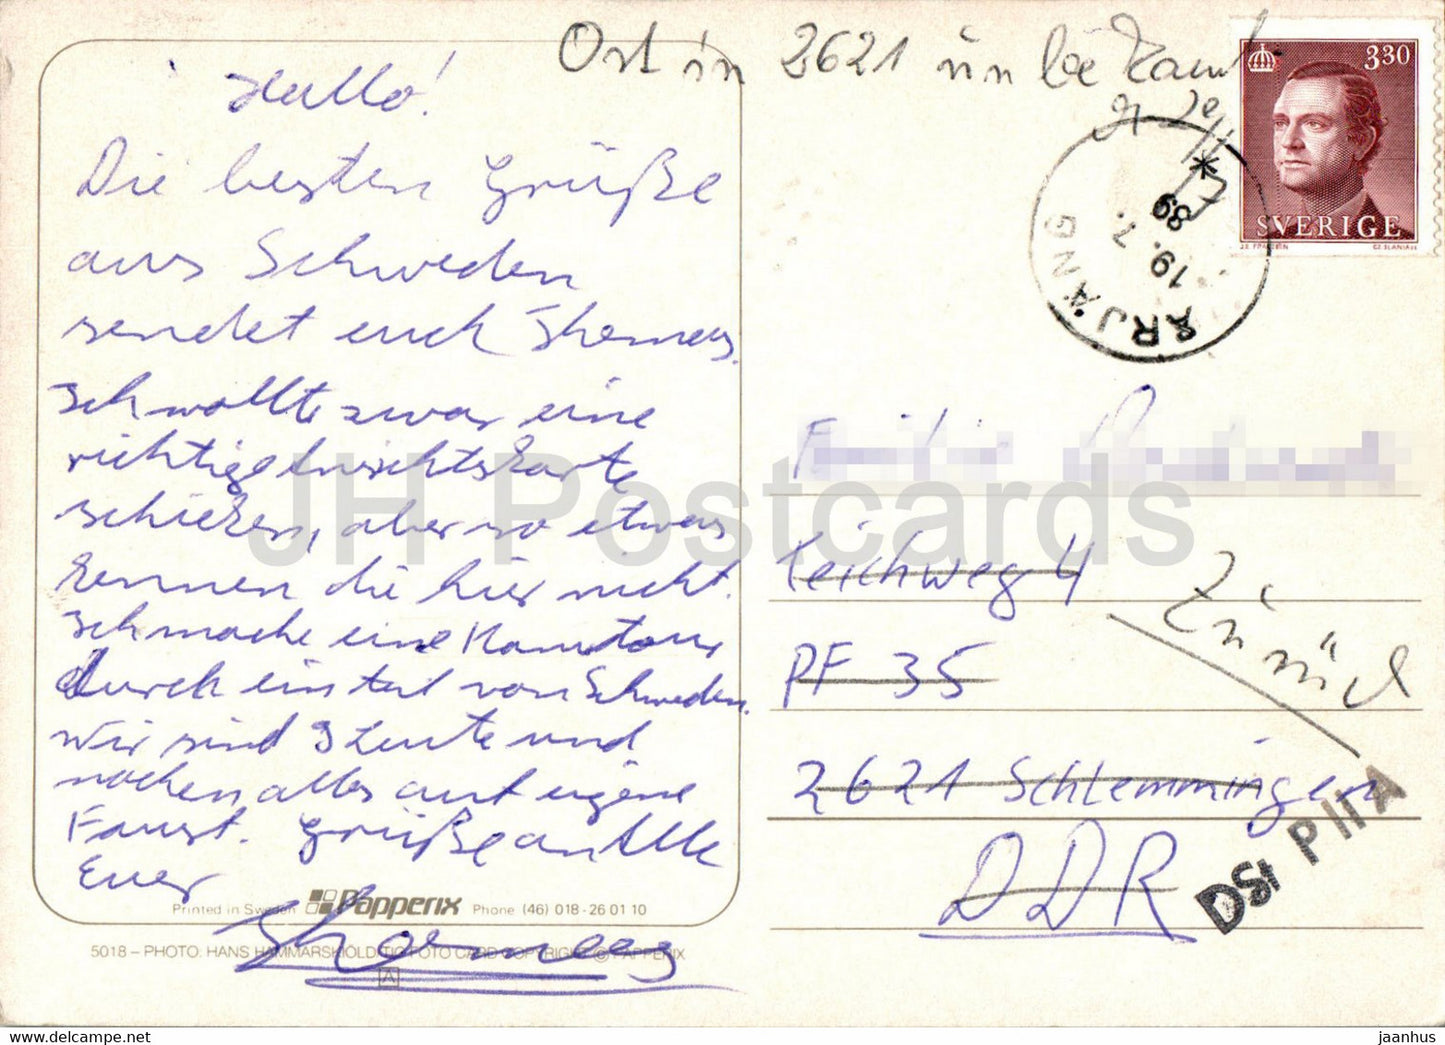 Ort in 2621 unbekannt
Hallo!
Die besten Grüße
aus Schweden
sendet euch Thomas.
Ich wollte zwar eine
richtige Ansichtskarte
schicken, aber so etwas
kennen die hier nicht.
Ich mache eine Kanutour
durch ein teil von Schweden.
Wir sind 3 Leute und
machen alles auf eigene
Faust. Grüße an Alle
Euer
Thomas
Printed in Sweden Papperix Phone (46) 018-26 01 10
5018 – PHOTO: HANS HAMMARSKIÖLD/TIO FOTO CARD COPYRIGHT © PAPPERIX
A
3 30
SVERIGE
CZ SLANIA SC
ÅRJÄNG
19. 7. 89
Teichweg 4
PF 35
2621 Schlemmingen
DDR
Zurück
DSt P II A
JH Postcards
www.delcampe.net
jaanhus